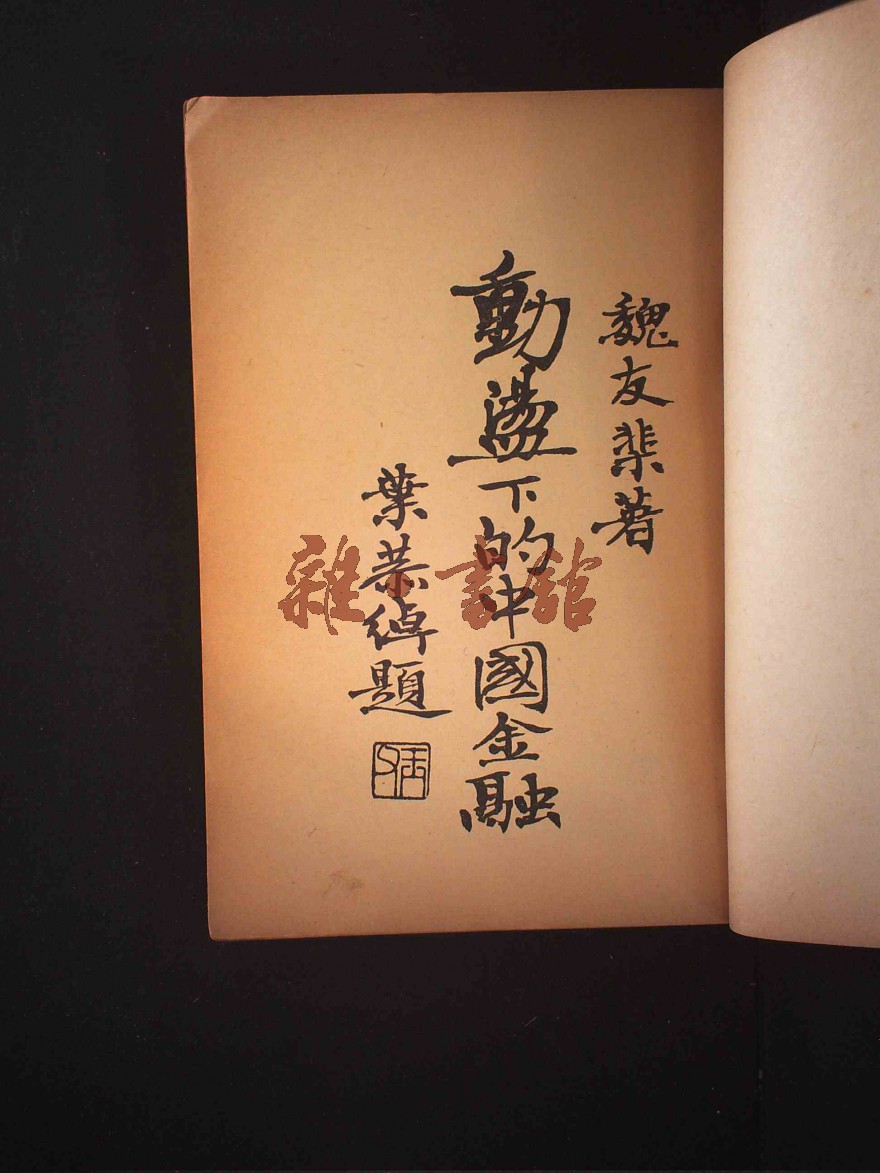 魏友棐著
動盪下的中國金融
葉恭綽題
雜書館